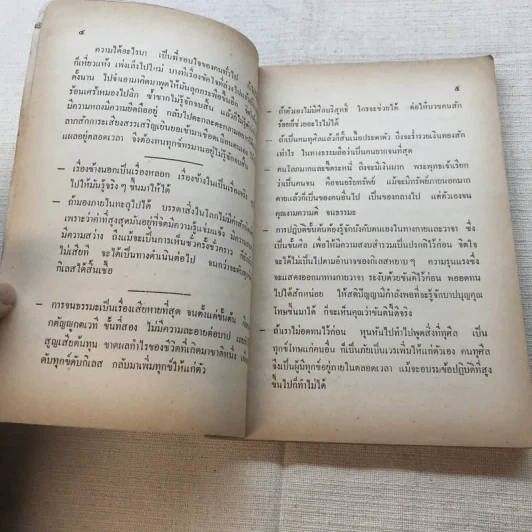 ๔
ความได้อะไรมา เป็นที่ชอบใจของคนทั่วไป
ก็เที่ยวแห้ง เพ่งเล็งไปใหม่ บางทีเรื่องขัดใจที่ล่วงไปแล้ว
ตั้งนาน ไปจับเอามาคิดมาพูดให้มันลุกกระพือขึ้นอีก
ร้อนเศร้าหมองไปอีก ซ้ำซากไม่รู้จักจบสิ้น แล้วก็
มีความหลงมีความยึดถืออยู่ กลับไปตะกละตะกลาม
ลาภสักการะเสียงสรรเสริญเยินยอเข้ามาเชือดเฉือน
แผลอยู่ตลอดเวลา จึงต้องทนทุกข์ทรมานอยู่ไม่รู้จักจบสิ้น
– เรื่องข้างนอกเป็นเรื่องหลอก เรื่องข้างในเป็นเรื่องจริง
ไปให้มันรู้จริง ๆ ขึ้นมาให้ได้
– ถ้ามองภายในทะลุไปได้ บรรดาสิ่งในโลกไม่มีค่า
เพราะว่าค่าที่สูงสุดมันอยู่ที่จิตมีความรู้แจ่มแจ้ง มีความ
มีความสว่าง ถึงแม้จะเป็นการเห็นชั่วครั้งชั่วคราว ก็
ไม่เสียที จะได้เป็นทางดำเนินต่อไป จนกว่าจะ
กิเลสได้สิ้นเชื้อ
– การจนธรรมะเป็นเรื่องเสียหายที่สุด จนตั้งแต่ขั้นต้น
กตัญญูกตเวที ขั้นที่สอง ไม่มีความละอายต่อบาป
สูญเสียต้นทุน ขาดผลกำไรของชีวิตที่เกิดมาชาติหนึ่ง เพื่อ
ดับทุกข์ดับกิเลส กลับมาเพิ่มทุกข์ให้แก่ตัว
๕
– ถ้าตัวเองไม่มีศีลบริสุทธิ์ ใครจะช่วยได้ ต่อให้บวชคนสัก
ร้อยก็ช่วยอะไรไม่ได้
– ถ้าเป็นคนทุศีลแล้วก็สิ้นเนื้อประดาตัว ถึงจะร่ำรวยเงินทองสัก
เท่าไร ในทางธรรมถือว่าเป็นคนยากจนที่สุด
– คนโลภมากและขี้ตระหนี่ ถึงจะมีเงินมาก พระพุทธเจ้าเรียก
ว่าเป็นคนจน คือจนอริยทรัพย์ แม้จะมีทรัพย์ภายนอกมาก
ตายแล้วก็เป็นของคนอื่นไป เป็นของกลางไป แต่ตัวเองจน
คุณงามความดี จนธรรมะ
– การปฏิบัติขั้นต้นต้องรู้จักบังคับตนเองในทางกายและวาจา ซึ่ง
เป็นขั้นศีล เพื่อให้มีความสงบสำรวมเป็นปรกติไว้ก่อน จิตใจ
จะได้ไม่เป็นไปตามอำนาจของกิเลสหยาบ ๆ ความรุนแรงซึ่ง
จะแสดงออกมาทางกายวาจา ระงับด้วยขันติไว้ก่อน พออดทน
ไปได้สักหน่อย ให้สติปัญญามีกำลังพอที่จะรู้จักบาปบุญคุณ
โทษขึ้นมาได้ ก็จะเห็นคุณว่าขันติดจริง
– ถ้าเราไม่อดทนไว้ก่อน หุนหันไปทำไปพูดสิ่งที่ทุศีล เป็น
ทุกข์โทษแก่คนอื่น ก็เป็นภัยเป็นเวรเพิ่มให้แก่ตัวเอง คนทุศีล
จึงเป็นผู้มีทุกข์อยู่ภายในตลอดเวลา แม้จะอบรมข้อปฏิบัติที่สูง
ขึ้นไปก็ทำไม่ได้